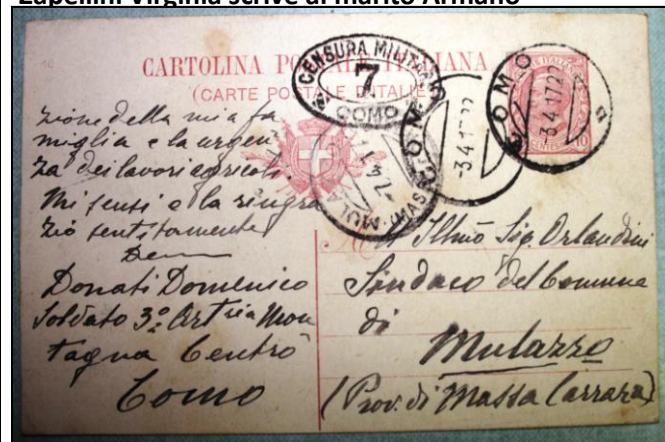 Zapellini Virginia scrive al marito Armano
CARTOLINA POSTALE ITALIANA
(CARTE POSTALE D'ITALIE)
CENSURA MILITARE
7
COMO
COMO
3 4 17 22
COMO
3 4 17 22
MULAZZO
10
zione della mia fa
miglia e la urgen
za dei lavori agricoli.
Mi scusi e la ringra
zio sentitamente
Donati Domenico
Soldato 3º Art ria Mon
tagna Centro
Como
Illmo Sig. Orlandini
Sindaco del Comune
di
Mulazzo
(Prov. di Massa Carrara)